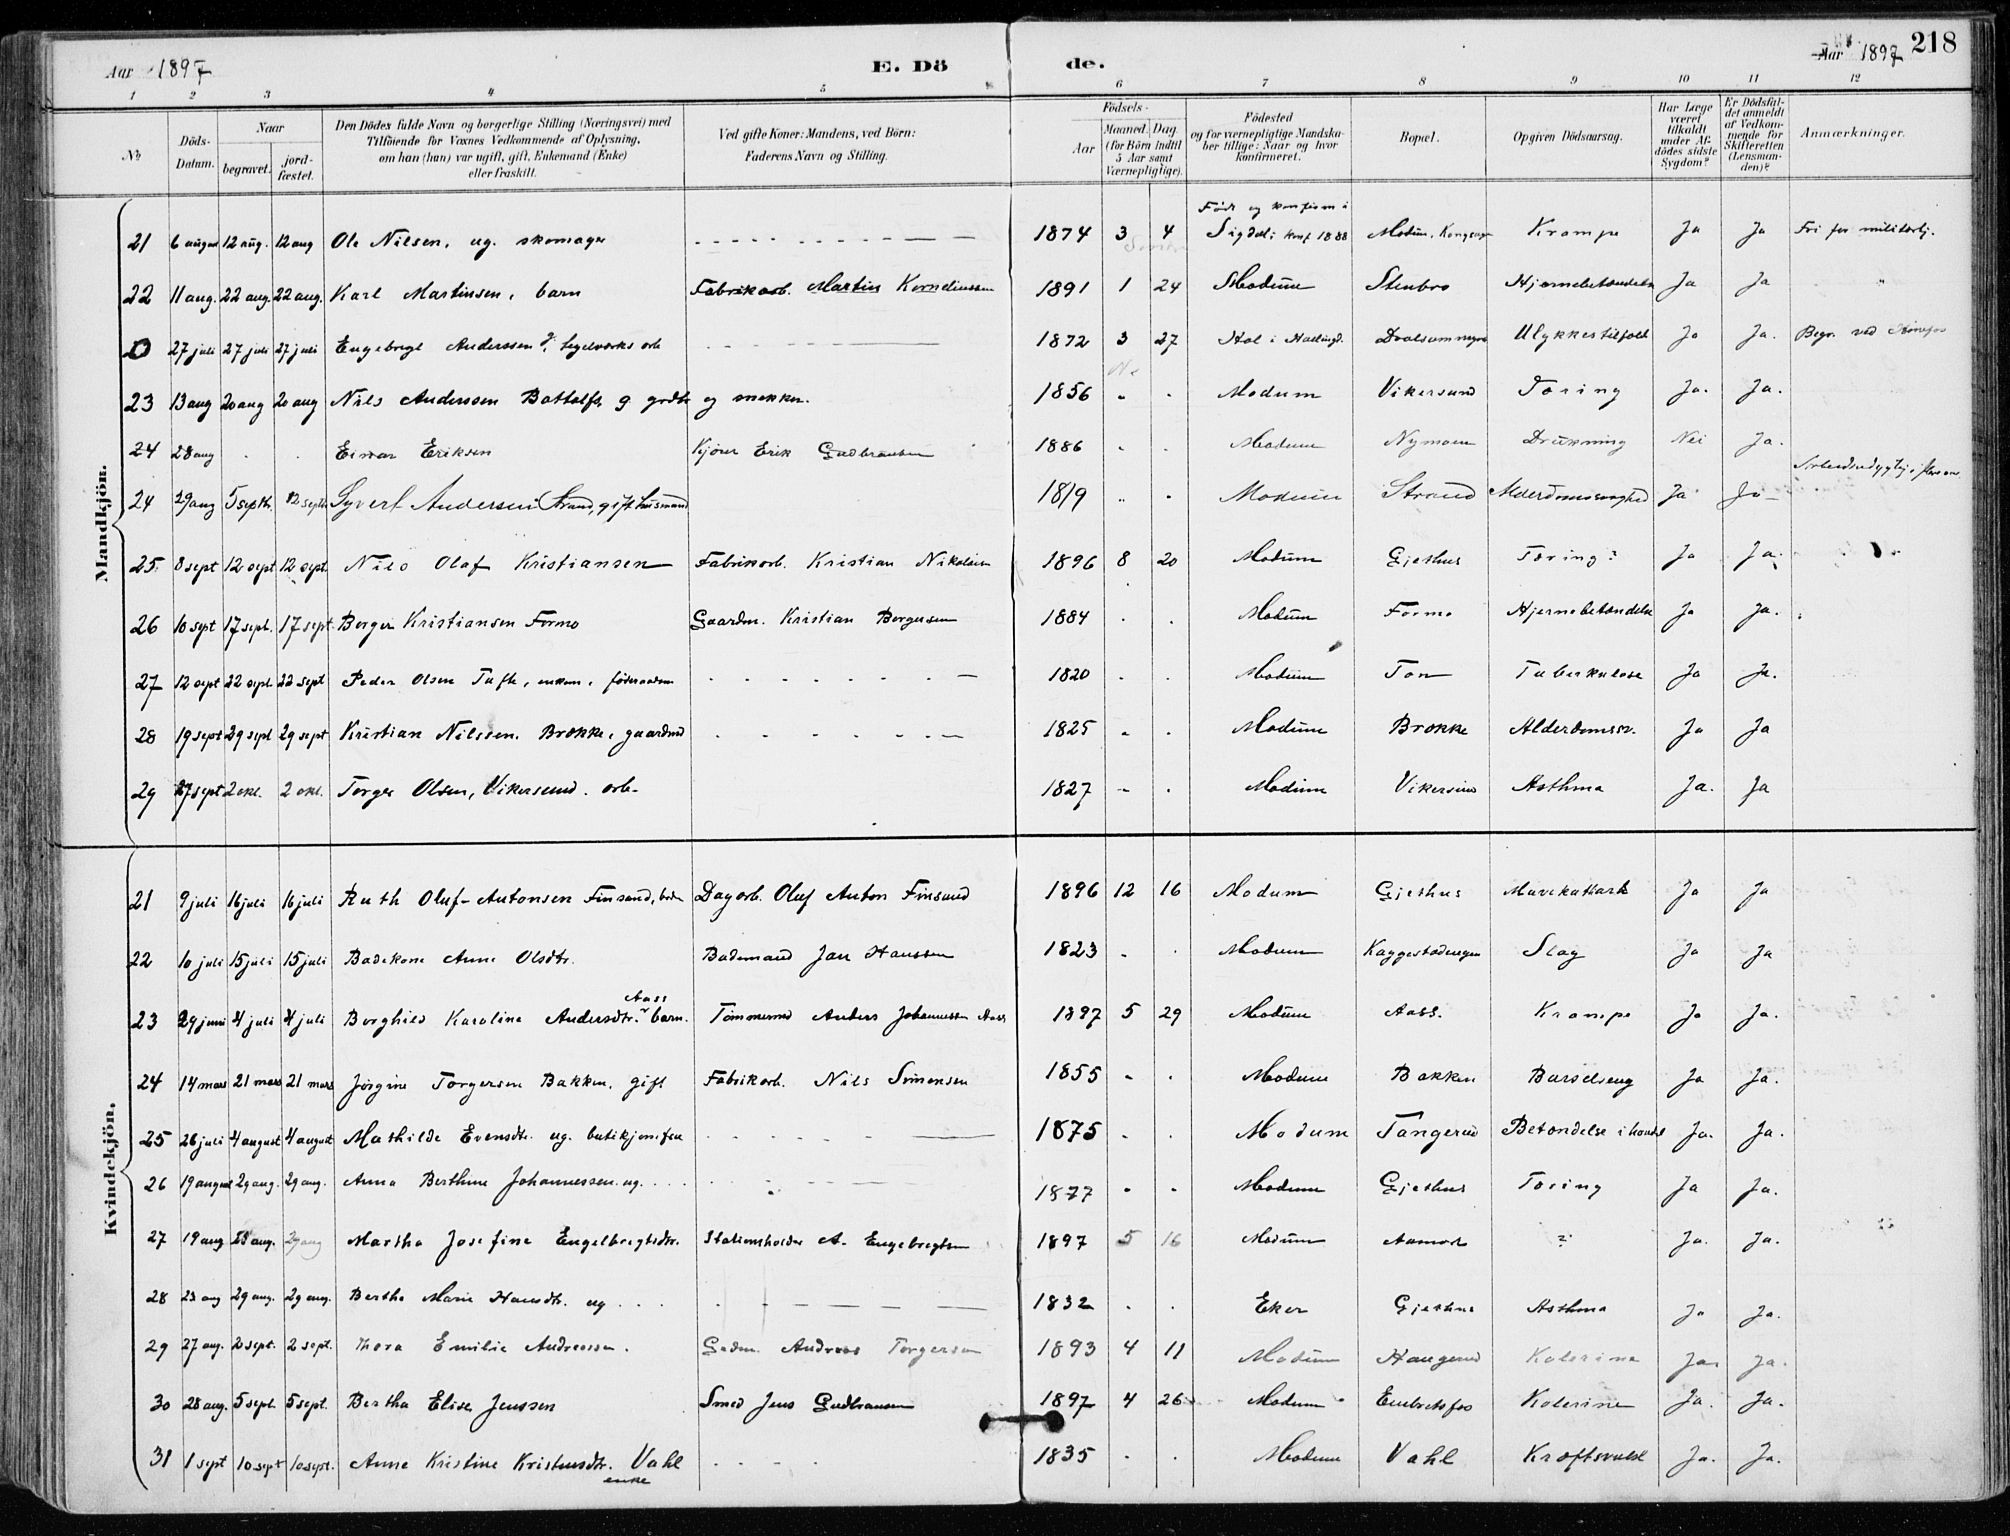 Aar 1897 E. Dö de. Aar 1897 218
1 2 3 4 5 6 7 8 9 10 11 12
№ Döds-Datum. Naar begravet. jord-fæstet. Den Dödes fulde Navn og borgerlige Stilling (Næringsvei) med Tilföiende for Voxnes Vedkommende af Oplysning, om han (hun) var ugift, gift, Enkemand (Enke) eller fraskilt. Ved gifte Koner: Mandens, ved Börn: Faderens Navn og Stilling. Födsels- Aar Maaned. Dag. (for Börn indtil 5 Aar samt Værnepligtige). Födested og for værnepligtige Mandskaber tillige: Naar og hvor konfirmeret. Bopæl. Opgiven Dödsaarsag. Har Læge været tilkaldt under Afdödes sidste Sygdom? Er Dödsfaldet anmeldt af Vedkommende for Skifteretten (Lensmanden)? Anmærkninger.
Mandkjön.
21 6 august 12 aug. 12 aug Ole Nilsen, ug. skomager 1874 3 4 Født og konfirm i Sigdal: konf 1888 Modum, Krampe Ja Ja Fri for militærtj.
22 11 aug. 22 aug 22 aug. Karl Martinsen, barn Fabrikarb. Martin Korneliussen 1891 1 24 Modum Stenbro Hjernebetændelse Ja Ja "
0 27 juli 27 juli 27 juli Engebregt Anderssen 1872 3 27 Hol i Hallingd. Ulykkestilfald Ja Ja. Begr. ved Hønefos
23 13 aug 20 aug 20 aug Nils Anderssen g grdbr og snekker. 1856 " . Modum Vikersund Tæring Ja. Ja.
24 28 aug . . Einar Eriksen Kjører Erik Gudbrandsen 1886 . . Modum Nymoen Drukning Nei Ja.
24 29 aug 5 septb. 12 septb. Syvert Andersen Strand, gift husmand 1819 " . Modum Strand Alderdomssvaghed Ja Ja
25 8 sept 12 sept 12 sept. Nils Olaf Kristiansen Fabrikarb. Kristian Nikolaisen 1896 8 20 Modum Gjethus Tæring? Ja Ja.
26 10 sept 17 sept. 17 sept. Borger Kristiansen Formo Gaardm. Kristian Borgersen 1884 . . Modum Formo Hjernebetændelse Ja Ja.
27 12 sept 22 sept. 22 sept Peder Olsen Tufte, enkem. føderaadsm 1820 . . Modum Ton Tuberkulose Ja Ja.
28 19 sept 29 sept 29 sept Kristian Nilssen. Brokke, gaardmd 1825 " . Modum Brokke Alderdomssv. Ja Ja
29 27 sept 2 okt. 2 okt. Torger Olsen, Vikersund. arb. 1827 " . Modum Vikersund Asthma Ja. Ja
Kvindekjön.
21 9 juli 16 juli 16 juli Ruth Oluf-Antonsen Finsand, barn Dagarb. Oluf Anton Finsand 1896 12 16 Modum Gjethus Mavekatharh Ja Ja
22 10 juli 15 juli 15 juli Badekone Anne Olsdtr. Bademand Jan Hanssen 1823 . . Modum Slag Ja Ja
23 29 juni 4 juli 4 juli Borghild Karoline Andersdtr. Aass barn. Tømmermd Anders Johannessen Aass 1897 5 29 Modum Aass. Krampe Ja Ja.
24 14 mars 21 mars 21 mars Jørgine Torgersen Bakken, gift Fabrikarb. Nils Simensen 1855 " . Modum Bakken Barselseng Ja Ja.
25 26 juli 4 august 4 august Mathilde Evensdtr. ug. butikjomfru 1875 . . Modum Tangerud Betændelse i hovedet Ja. Ja.
26 19 august 29 aug. 29 aug. Anna Berthine Johannessen. ug. 1877 " " Modum Gjethus Tæring Ja Ja.
27 19 aug 28 aug. 29 aug Martha Josefine Engelbregtsdtr. Stationsholder A. Engebregtsen 1897 5 16 Modum Aamot ? Ja. Ja.
28 23 aug 29 aug. 29 aug. Berthe Marie Hansdtr. ug 1832 . . Eker Gjethus Asthma Ja Ja.
29 27 aug. 2 sept. 2 sept. Thora Emilie Andreassen. Gdm. Andreas Torgersen 1893 4 11 Modum Haugerud Kolerine Ja. Ja.
30 28 aug. 5 sept. 5 sept. Bertha Elise Jenssen Smed Jens Gudbransen 1897 4 26 Modum Embretsfos Kolerine Ja. Ja.
31 1 sept 10 sept 10 sept. Anne Kristine Kristensdtr. Vahl enke 1835 . . Modum Vahl Kræftsvulst Ja. Ja.